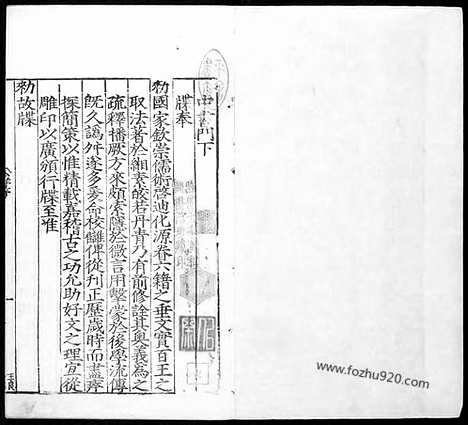 中書門下
牒奉
勑國家欽崇儒術啓迪化源眷六籍之垂文實百王之
取法著於緗素皎若丹青乃有前修詮其奧義為之
疏釋播厥方來頗索隱於微言用擊蒙於後學流傳
既久譌舛遂多爰命校讎俾從刊正歷歲時而盡瘁
探簡策以惟精載嘉稽古之功允助好文之理宜從
雕印以廣頒行牒至准
勑故牒
www.fozhu920.com